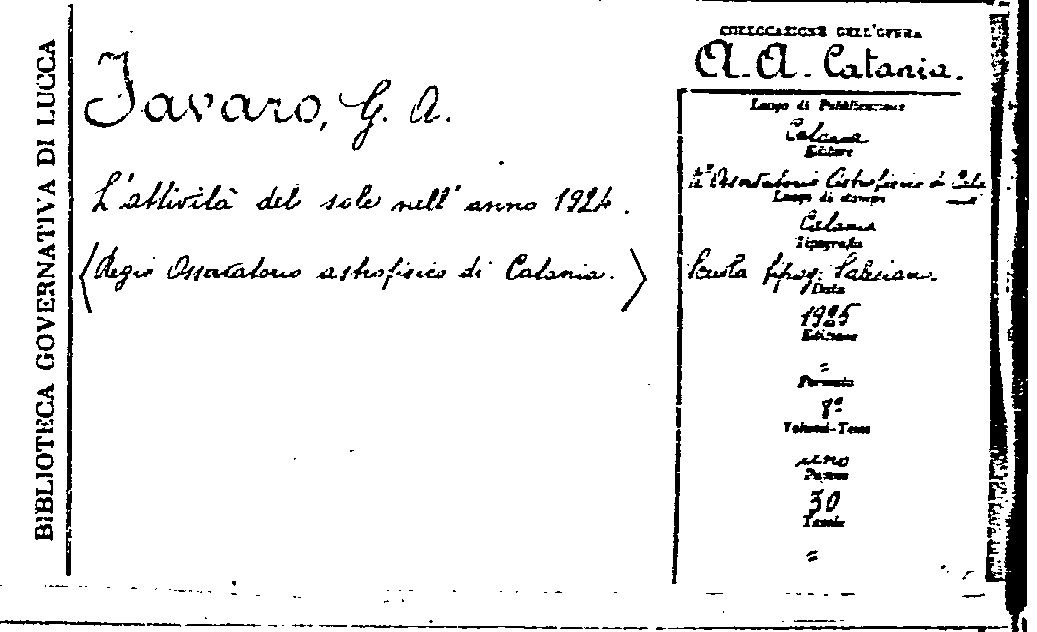 BIBLIOTECA GOVERNATIVA DI LUCCA
Favaro, G. A.
L'attività del sole nell'anno 1924.
(Regio Osservatorio astrofisico di Catania.)
COLLOCAZIONE DELL'OPERA
A. A. Catania.
Luogo di Pubblicazione
Catania
Editore
Rº Osservatorio Astrofisico di Cata
Luogo di stampa
Catania
Tipografia
Scuola tipog. Salesiana
Data
1925
Edizione
=
Formato
8º
Volumi-Tomi
uno
Pagine
30
Tavole
=